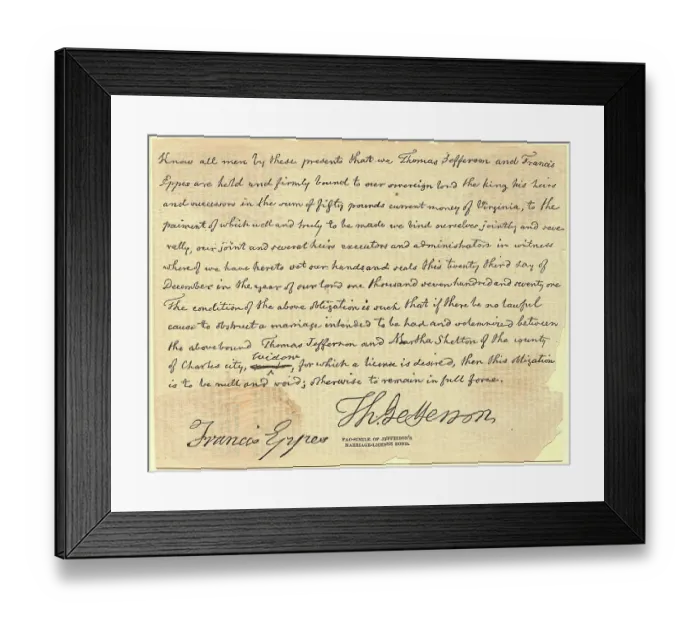 Know all men by these presents that we Thomas Jefferson and Francis
Eppes are held and firmly bound to our sovereign lord the king his heirs
and successors in the sum of fifty pounds current money of Virginia, to the
paiment of which well and truly to be made we bind ourselves jointly and seve-
rally, our joint and several heirs executors and administrators in witness
whereof we have hereto set our hands and seals this twenty third day of
December in the year of our lord one thousand seven hundred and seventy one
The condition of the above obligation is such that if there be no lawful
cause to obstruct a marriage intended to be had and solemnized between
the abovebound Thomas Jefferson and Martha Skelton of the county
widow
of Charles city, , for which a license is desired, then this obligation
is to be null and void; otherwise to remain in full force.
Th Jefferson
Francis Eppes
FAC-SIMILE OF JEFFERSON'S
MARRIAGE-LICENSE BOND.